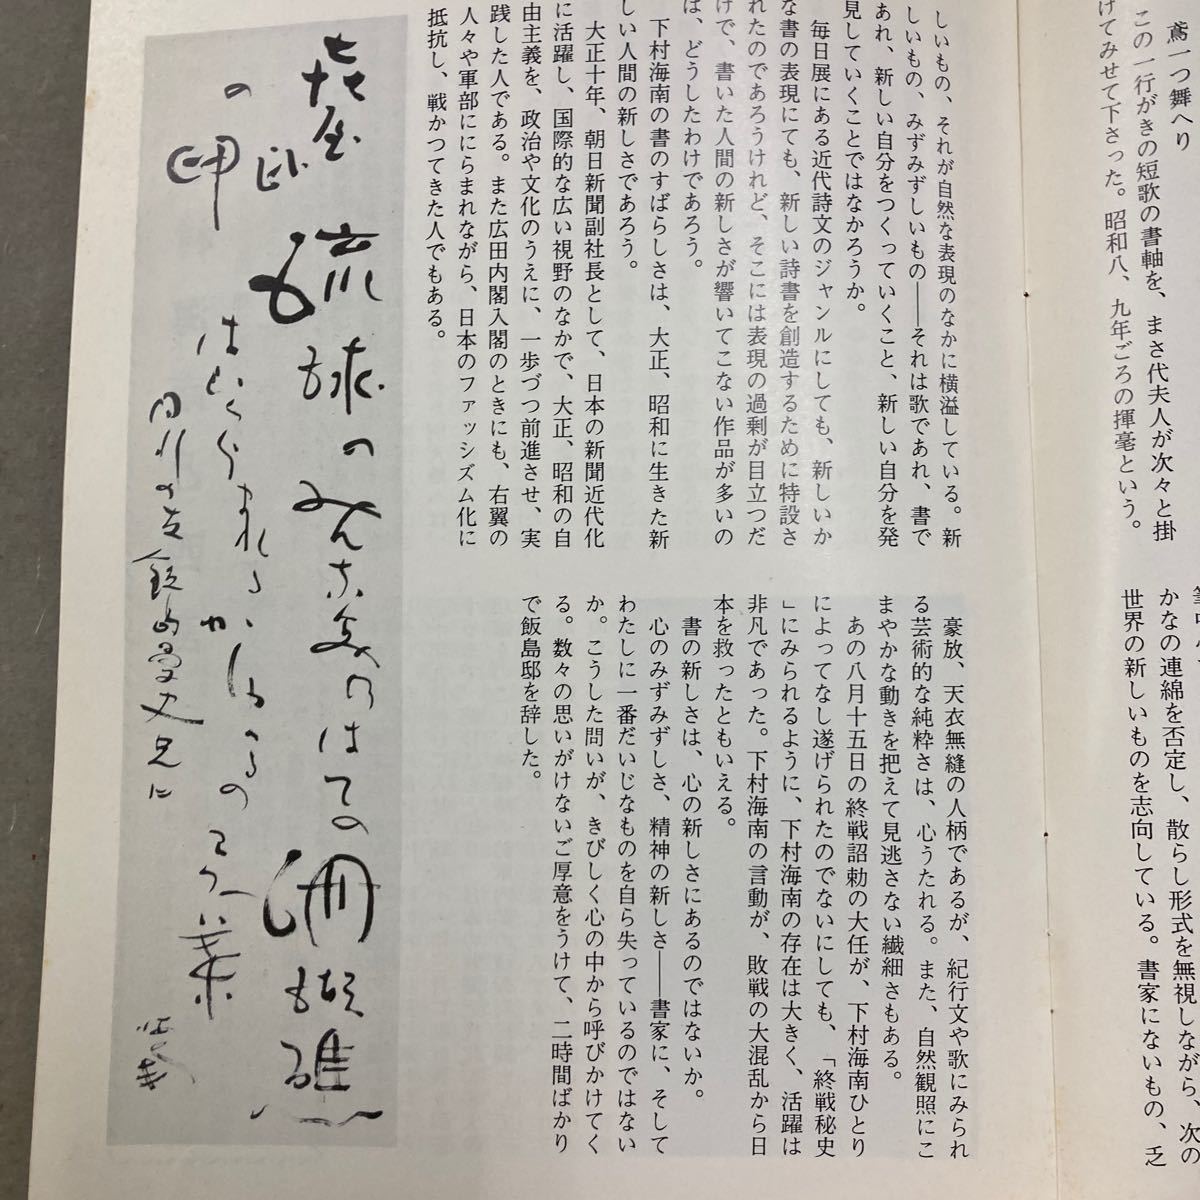 鳶一つ舞へり
この一行がきの短歌の書軸を、まさ代夫人が次々と掛
けてみせて下さった。昭和八、九年ごろの揮毫という。
かなの連綿を否定し、散らし形式を無視しながら、次の
世界の新しいものを志向している。書家にないもの、乏
しいもの、それが自然な表現のなかに横溢している。新
しいもの、みずみずしいもの——それは歌であれ、書で
あれ、新しい自分をつくっていくこと、新しい自分を発
見していくことではなかろうか。
毎日展にある近代詩文のジャンルにしても、新しいか
な書の表現にても、新しい詩書を創造するために特設さ
れたのであろうけれど、そこには表現の過剰が目立つだ
けで、書いた人間の新しさが響いてこない作品が多いの
は、どうしたわけであろう。
下村海南の書のすばらしさは、大正、昭和に生きた新
しい人間の新しさであろう。
大正十年、朝日新聞副社長として、日本の新聞近代化
に活躍し、国際的な広い視野のなかで、大正、昭和の自
由主義を、政治や文化のうえに、一歩づつ前進させ、実
践した人である。また広田内閣入閣のときにも、右翼の
人々や軍部ににらまれながら、日本のファッシズム化に
抵抗し、戦かつてきた人でもある。
豪放、天衣無縫の人柄であるが、紀行文や歌にみられ
る芸術的な純粋さは、心うたれる。また、自然観照にこ
まやかな動きを把えて見逃さない繊細さもある。
あの八月十五日の終戦詔勅の大任が、下村海南ひとり
によってなし遂げられたのでないにしても、「終戦秘史
」にみられるように、下村海南の存在は大きく、活躍は
非凡であった。下村海南の言動が、敗戦の大混乱から日
本を救ったともいえる。
書の新しさは、心の新しさにあるのではないか。
心のみずみずしさ、精神の新しさ——書家に、そして
わたしに一番だいじなものを自ら失っているのではない
か。こうした問いが、きびしく心の中から呼びかけてく
る。数々の思いがけないご厚意をうけて、二時間ばかり
で飯島邸を辞した。
琉球のみんなみのはての珊瑚礁